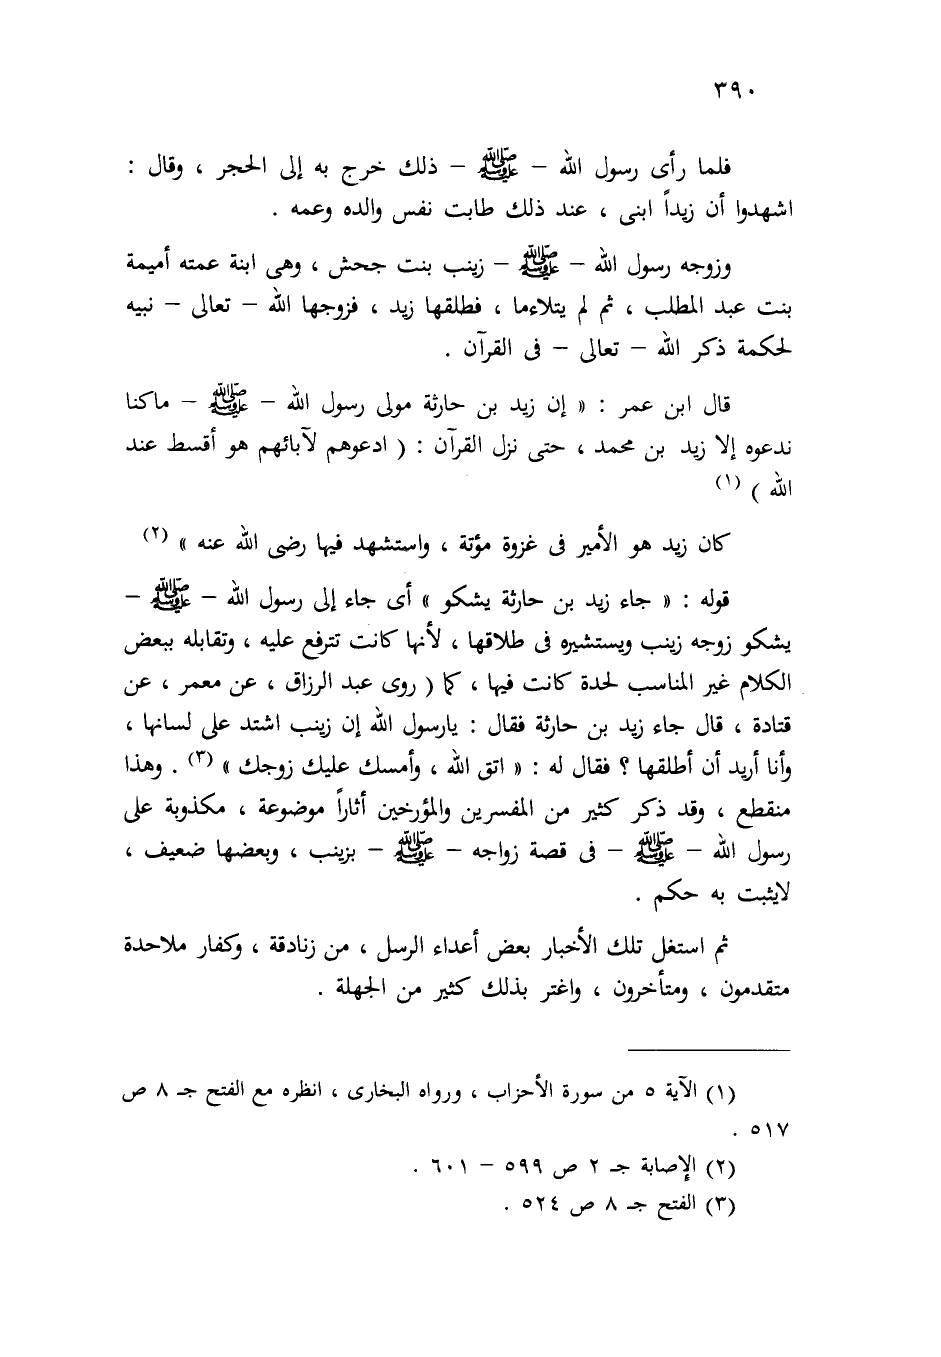 ٣٩٠
فلما رأى رسول الله – ﷺ – ذلك خرج به إلى الحجر ، وقال :
اشهدوا أن زيداً ابنى ، عند ذلك طابت نفس والده وعمه .
وزوجه رسول الله – ﷺ – زينب بنت جحش ، وهى ابنة عمته أميمة
بنت عبد المطلب ، ثم لم يتلاءما ، فطلقها زيد ، فزوجها الله – تعالى – نبيه
لحكمة ذكر الله – تعالى – فى القرآن .
قال ابن عمر : « إن زيد بن حارثة مولى رسول الله – ﷺ – ماكنا
ندعوه إلا زيد بن محمد ، حتى نزل القرآن : ( ادعوهم لآبائهم هو أقسط عند
الله ) (١)
كان زيد هو الأمير فى غزوة مؤتة ، واستشهد فيها رضى الله عنه » (٢)
قوله : « جاء زيد بن حارثة يشكو » أى جاء إلى رسول الله – ﷺ –
يشكو زوجه زينب ويستشيره فى طلاقها ، لأنها كانت تترفع عليه ، وتقابله ببعض
الكلام غير المناسب لحدة كانت فيها ، كما ( روى عبد الرزاق ، عن معمر ، عن
قتادة ، قال جاء زيد بن حارثة فقال : يارسول الله إن زينب اشتد على لسانها ،
وأنا أريد أن أطلقها ؟ فقال له : « اتق الله ، وأمسك عليك زوجك » (٣) . وهذا
منقطع ، وقد ذكر كثير من المفسرين والمؤرخين أثاراً موضوعة ، مكذوبة على
رسول الله – ﷺ – فى قصة زواجه – ﷺ – بزينب ، وبعضها ضعيف ،
لايثبت به حكم .
ثم استغل تلك الأخبار بعض أعداء الرسل ، من زنادقة ، وكفار ملاحدة
متقدمون ، ومتأخرون ، واغتر بذلك كثير من الجهلة .
(١) الآية ٥ من سورة الأحزاب ، ورواه البخارى ، انظره مع الفتح جـ ٨ ص
٥١٧ .
(٢) الإصابة جـ ٢ ص ٥٩٩ – ٦٠١ .
(٣) الفتح جـ ٨ ص ٥٢٤ .